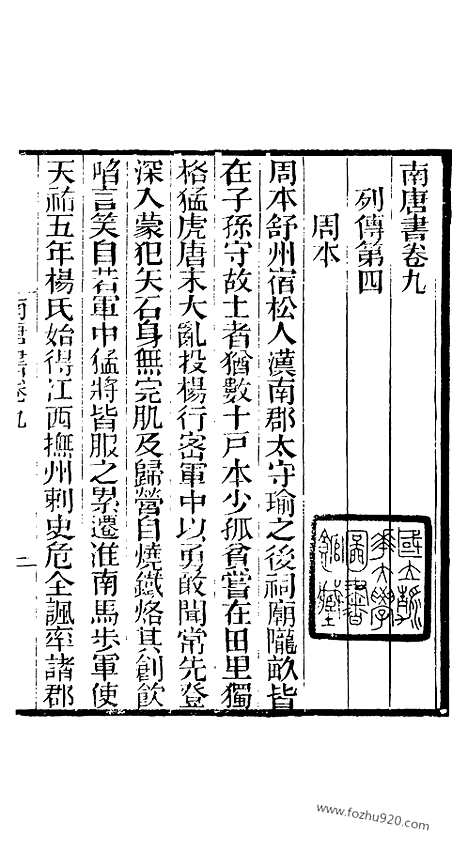 南唐書卷九
列傳第四
周本
周本舒州宿松人漢南郡太守瑜之後祠廟隴畝皆
在子孫守故土者猶數十戸本少孤貧嘗在田里獨
格猛虎唐末大亂投楊行密軍中以勇敢聞常先登
深入蒙犯矢石身無完肌及歸營自燒鐵烙其創飲
啗言笑自若軍中猛將皆服之累遷淮南馬步軍使
天祐五年楊氏始得江西撫州刺史危全諷率諸郡
南唐書卷九
一
國立浙
江大學
圖書
館藏
www.fozhu920.com